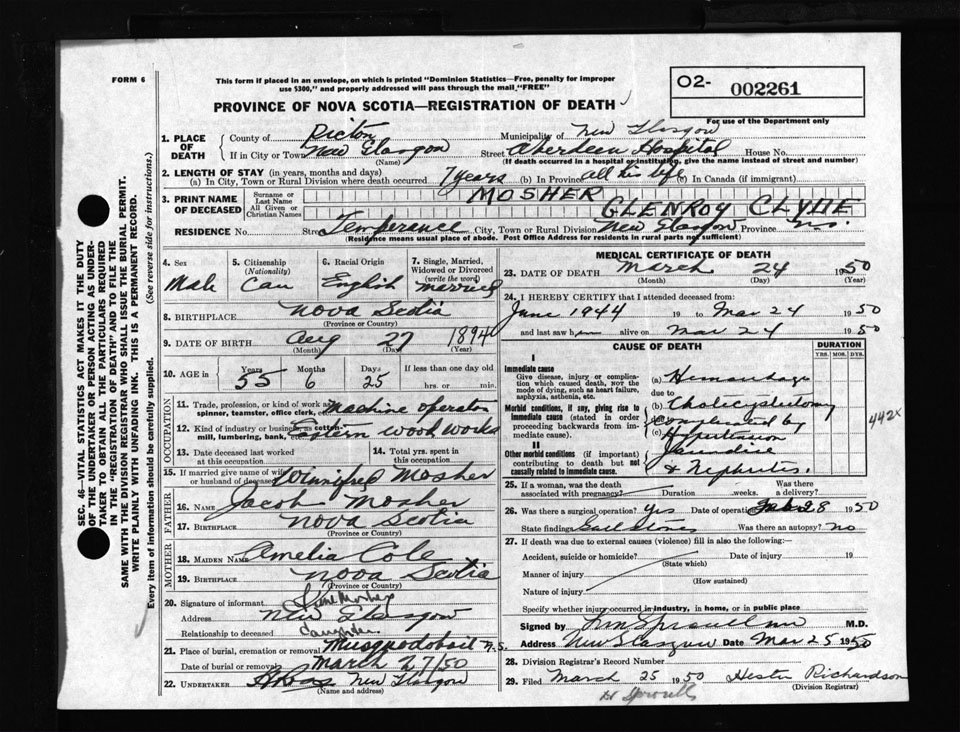 FORM 6
This form if placed in an envelope, on which is printed "Dominion Statistics—Free, penalty for improper
use $300," and properly addressed will pass through the mail "FREE"
O2- 002261
For use of the Department only
PROVINCE OF NOVA SCOTIA—REGISTRATION OF DEATH
1. PLACE OF DEATH County of Pictou Municipality of New Glasgow
If in City or Town New Glasgow (Name) Street Aberdeen Hospital House No.
(If death occurred in a hospital or institution, give the name instead of street and number)
2. LENGTH OF STAY (in years, months and days)
(a) In City, Town or Rural Division where death occurred 7 years (b) In Province all his life (c) In Canada (if immigrant)
3. PRINT NAME OF DECEASED Surname or Last Name MOSHER
All Given or Christian Names GLENROY CLYDE
RESIDENCE No. Street Temperence City, Town or Rural Division New Glasgow Province N.S.
(Residence means usual place of abode. Post Office Address for residents in rural parts not sufficient)
4. Sex Male
5. Citizenship (Nationality) Can
6. Racial Origin English
7. Single, Married, Widowed or Divorced (write the word) Married
8. BIRTHPLACE Nova Scotia
(Province or Country)
9. DATE OF BIRTH Aug 27 1894
(Month) (Day) (Year)
10. AGE in Years 55 Months 6 Days 25 If less than one day old hrs. or min.
OCCUPATION
11. Trade, profession or kind of work as spinner, teamster, office clerk, Machine operator
12. Kind of industry or business, as cotton-mill, lumbering, bank, Eastern Wood Works
13. Date deceased last worked at this occupation
14. Total yrs. spent in this occupation
15. If married give name of wife or husband of deceased Winnifred Mosher
FATHER
16. NAME Jacob Mosher
17. BIRTHPLACE Nova Scotia
(Province or Country)
MOTHER
18. MAIDEN NAME Amelia Cole
19. BIRTHPLACE Nova Scotia
(Province or Country)
20. Signature of informant Mosher
Address New Glasgow
Relationship to deceased daughter
21. Place of burial, cremation or removal Musquodoboit N.S.
Date of burial or removal March 27/50
22. UNDERTAKER New Glasgow
(Name and address)
MEDICAL CERTIFICATE OF DEATH
23. DATE OF DEATH March 24 1950
(Month) (Day) (Year)
24. I HEREBY CERTIFY that I attended deceased from:
June 1944 19 to Mar 24 1950
and last saw h alive on Mar 24 1950
CAUSE OF DEATH
DURATION
YRS. MOS. DYS.
I
Immediate cause
Give disease, injury or complication which caused death, NOT the mode of dying, such as heart failure, asphyxia, asthenia, etc.
(a) Hemorrhage
due to
Morbid conditions, if any, giving rise to immediate cause (stated in order proceeding backwards from immediate cause).
(b) Cholecystectomy
complicated by
(c) Hypertension
442X
II
Other morbid conditions (if important) contributing to death but not causally related to immediate cause.
Jaundice
& Nephritis.
25. If a woman, was the death associated with pregnancy? Duration weeks. Was there a delivery?
26. Was there a surgical operation? Yes Date of operation Feb 28 1950
State findings Gall Stones Was there an autopsy? no
27. If death was due to external causes (violence) fill in also the following:—
Accident, suicide or homicide? Date of injury 19
(State which)
Manner of injury
(How sustained)
Nature of injury
Specify whether injury occurred in industry, in home, or in public place
Signed by M.D.
Address New Glasgow Date Mar 25 1950
28. Division Registrar's Record Number
29. Filed March 25 1950 Hester Richardson
(Division Registrar)
SEC. 46—VITAL STATISTICS ACT MAKES IT THE DUTY
OF THE UNDERTAKER OR PERSON ACTING AS UNDER-
TAKER TO OBTAIN ALL THE PARTICULARS REQUIRED
IN THE "REGISTRATION OF DEATH" AND TO FILE THE
SAME WITH THE DIVISION REGISTRAR WHO SHALL ISSUE THE BURIAL PERMIT.
WRITE PLAINLY WITH UNFADING INK. THIS IS A PERMANENT RECORD.
Every item of information should be carefully supplied. (See reverse side for instructions.)